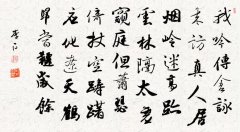 我吟傳舍詠
来訪真人居
烟嶺迷高跡
雲林隔太虛
窺庭但蕭瑟
倚杖空躊躇
應化遼天鶴
歸當千歲餘